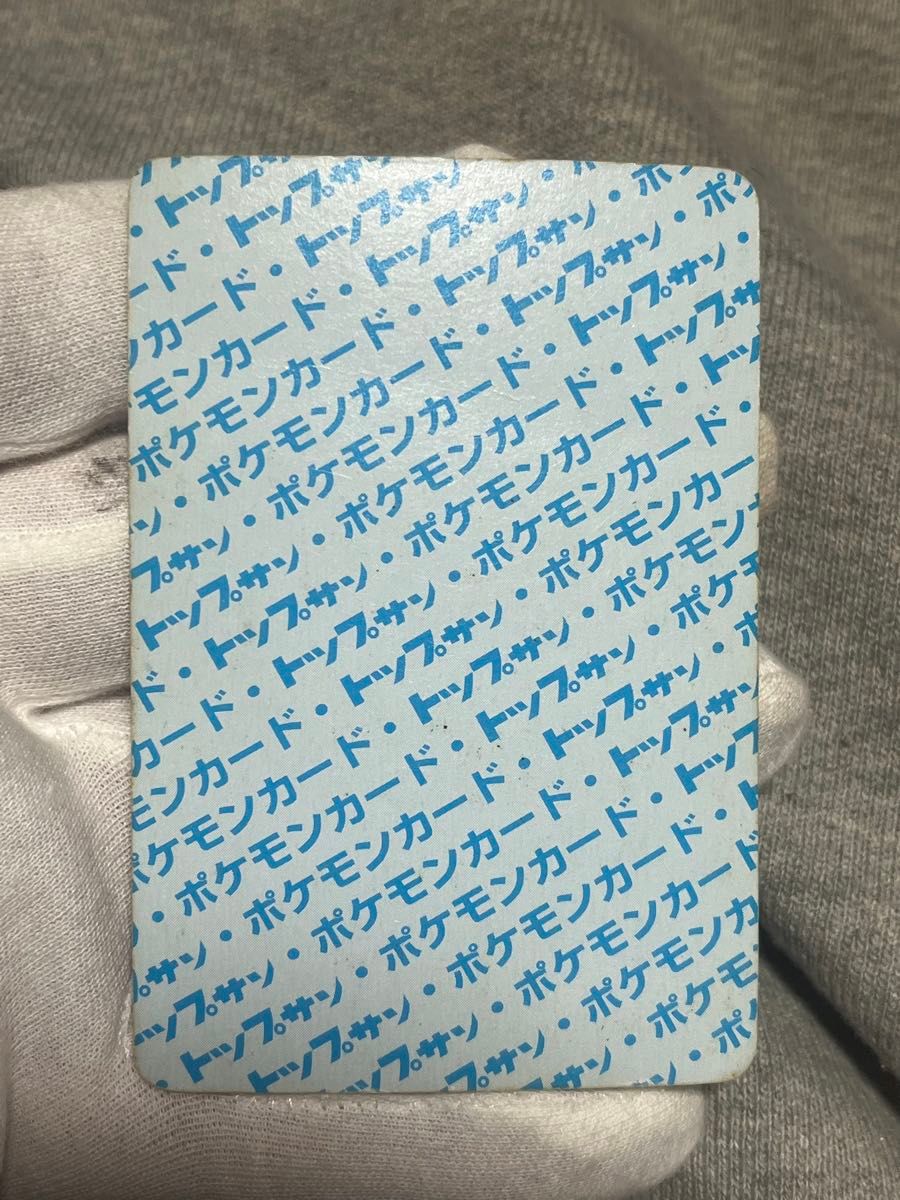 ・トップ
ード・トップサ
ンカード・トップサン
モンカード・トップサン・
ポケモンカード・トップサン・ポ
ン・ポケモンカード・トップサン・ポケ
プサン・ポケモンカード・トップサン・
トップサン・ポケモンカード・トップサ
ド・トップサン・ポケモンカード・トッ
カード・トップサン・ポケモンカード・
モンカード・トップサン・ポケモンカー
ケモンカード・トップサン・ポケモン
・ポケモンカード・トップサン・ポケモ
プサン・ポケモンカード・トップサン・ポ
トップサン・ポケモンカード・トップサン
・トップサン・ポケモンカード・トップ
トップサン・ポケモンカード・ト
プサン・ポケモンカード
サン・ポケモンカ
ン・ポケモ
・ポ